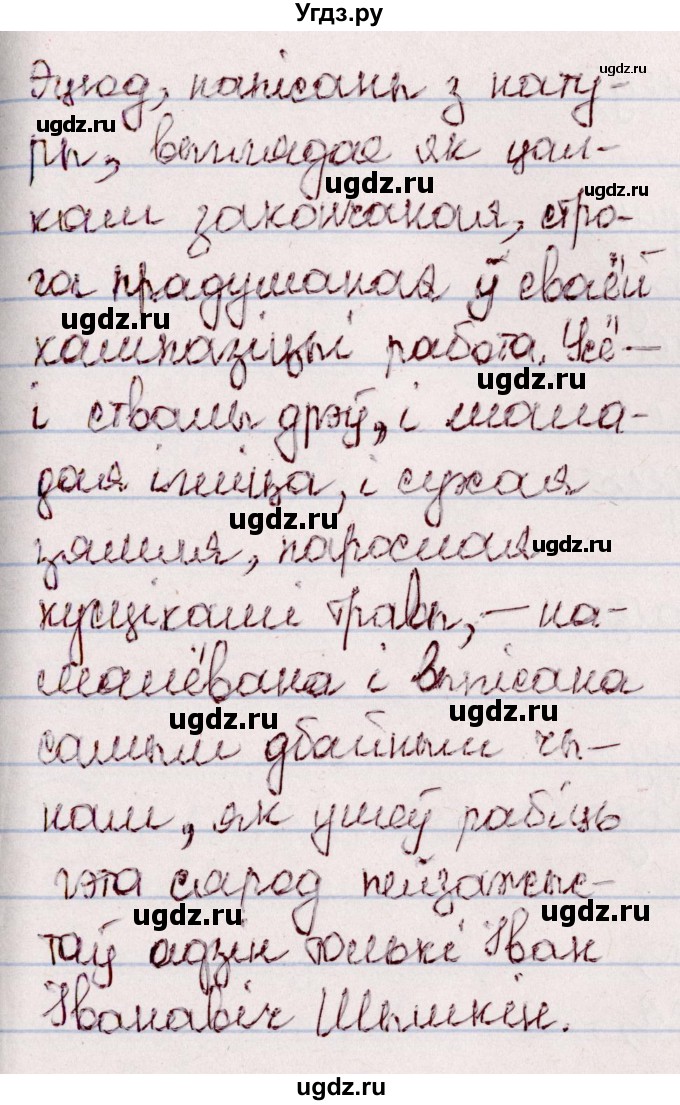 Угдз.ру
Эцюд, напісаны з нату-
ры, выглядае як цал-
кам закончаная, стро-
га прадуманая ў сваёй
кампазіцыі работа. Усё –
і ствалы дрэў, і мала-
дая ігліца, і сухая
зямля, парослая
кусцікамі травы, – на-
малёвана і выпісана
самым дбайным чы-
нам, як умеў рабіць
гэта сярод пейзажыс-
таў адзін толькі Іван
Іванавіч Шышкін.
ugdz.ru
ugdz.ru
ugdz.ru
ugdz.ru
ugdz.ru
ugdz.ru
ugdz.ru
ugdz.ru
ugdz.ru
ugdz.ru
ugdz.ru
ugdz.ru
ugdz.ru